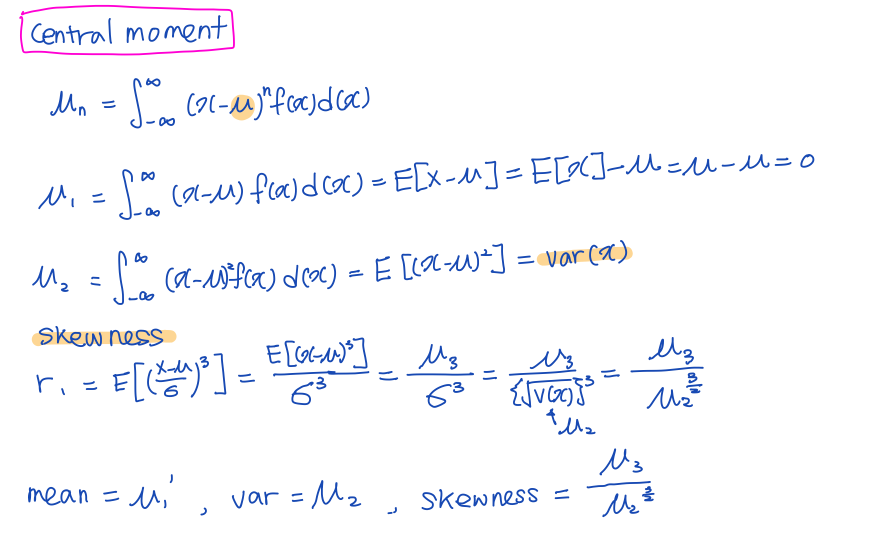 Central moment
μₙ = ∫₋∞^∞ (x-μ)ⁿf(x)d(x)
μ₁ = ∫₋∞^∞ (x-μ) f(x)d(x) = E[X-μ] = E[x]-μ = μ-μ = 0
μ₂ = ∫₋∞^∞ (x-μ)²f(x) d(x) = E [(x-μ)²] = var(x)
skewness
r₁ = E[((x-μ)/σ)³] = E[(x-μ)³]/σ³ = μ₃/σ³ = μ₃/{√V(x)}³ = μ₃/μ₂^(3/2)
↑μ₂
mean = μ₁', var = μ₂, skewness = μ₃/μ₂^(3/2)